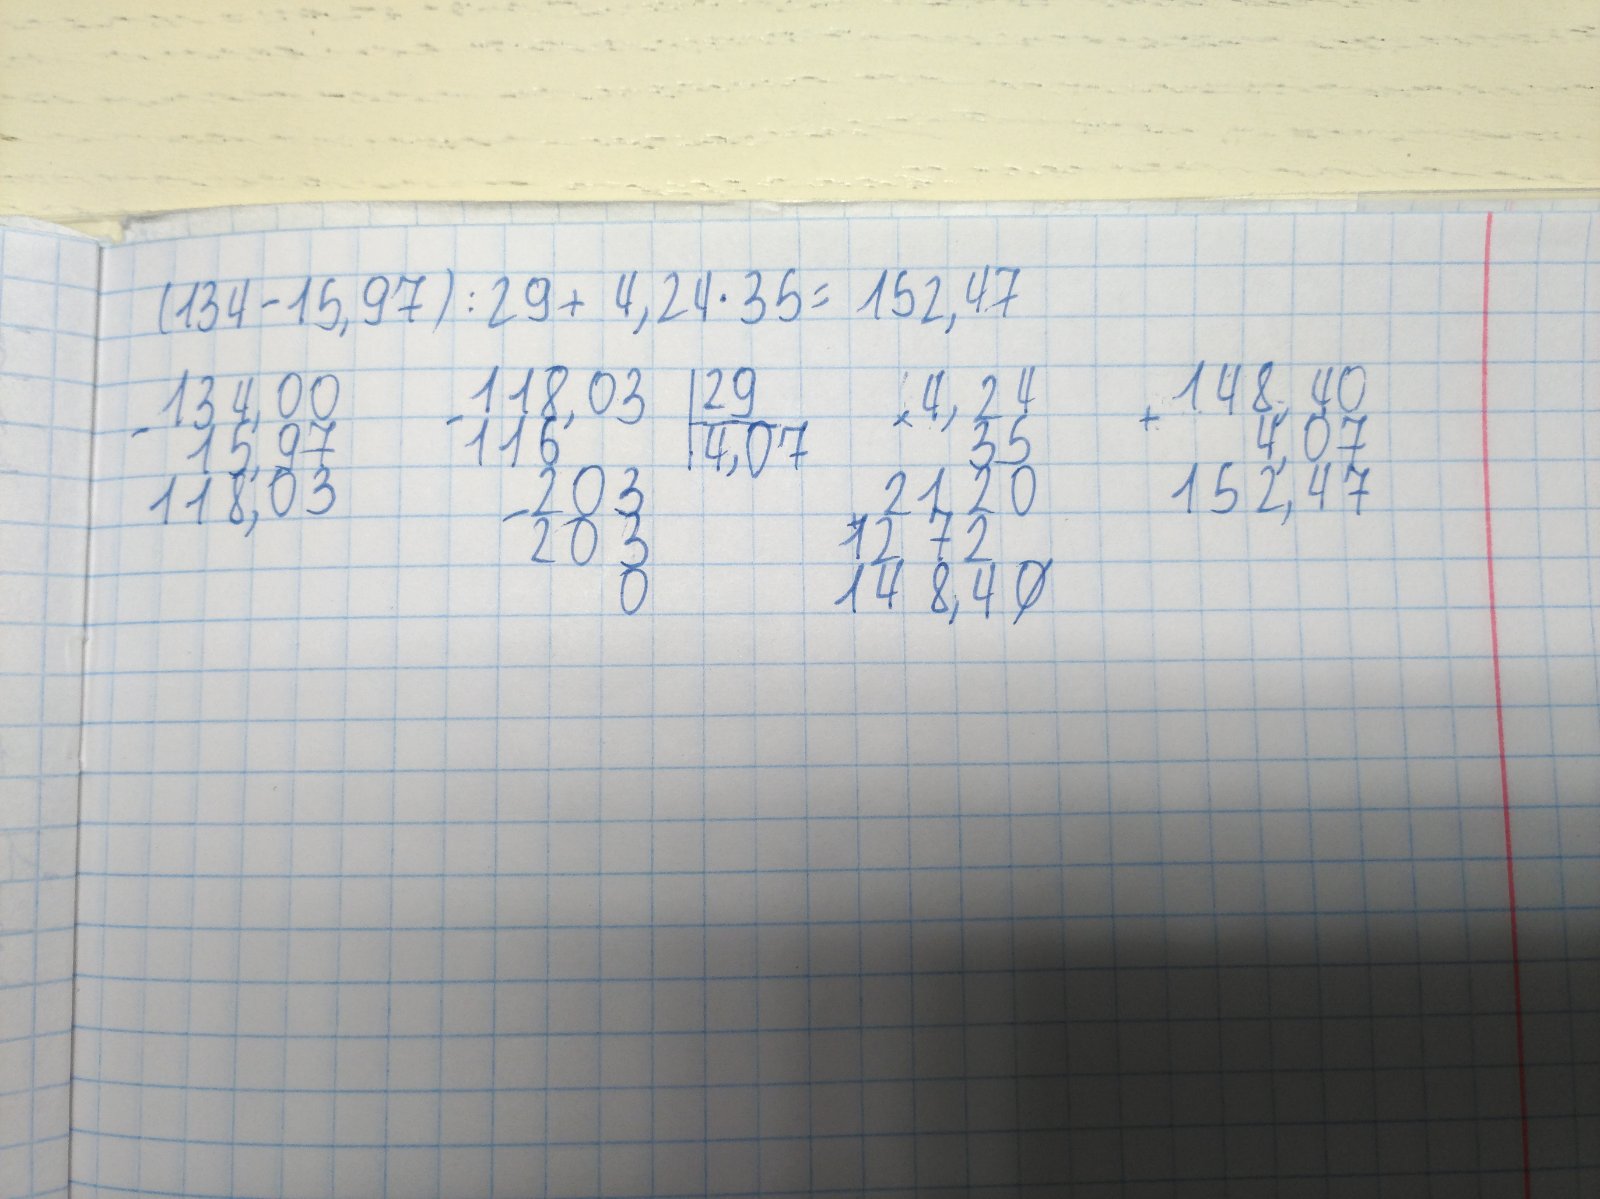 (134-15,97):29+ 4,24·35= 152,47
-134,00 -118,03 |29 ×4,24 +148,40
15,97 116 |4,07 35 4,07
118,03 -203 2120 152,47
203 1272
0 148,40